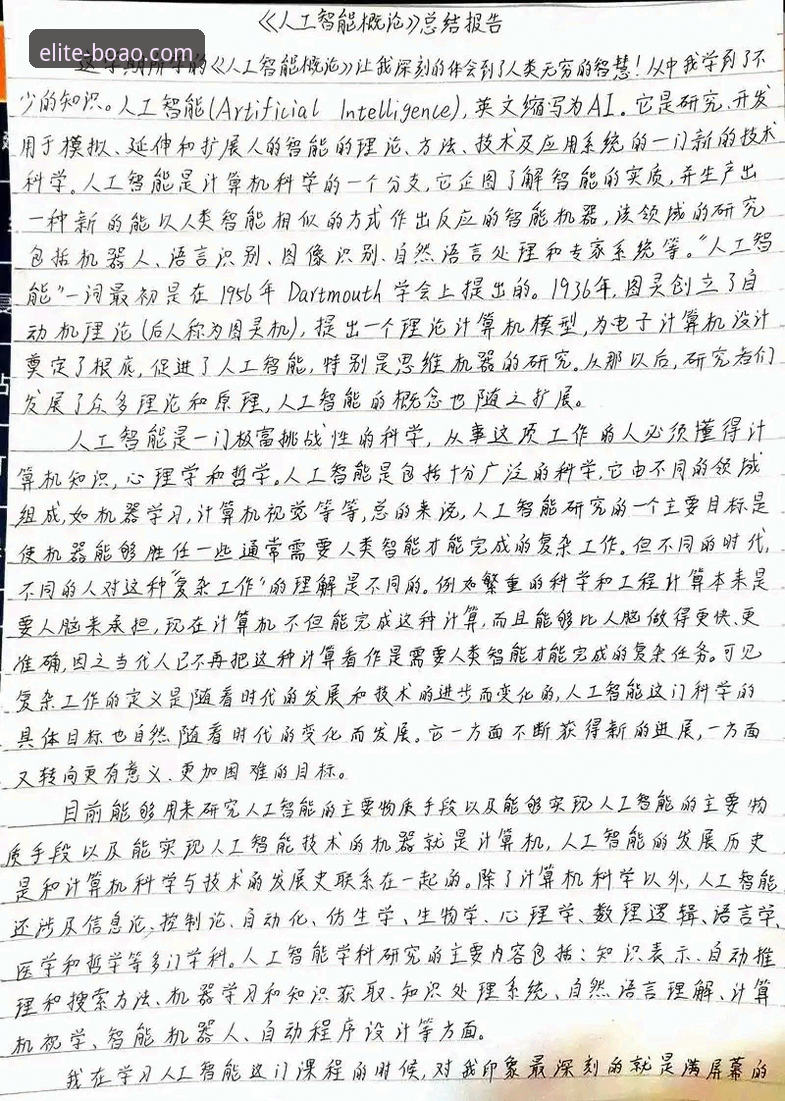 《人工智能概论》总结报告
elite-boao.com
这学期所学的《人工智能概论》让我深刻的体会到了人类无穷的智慧!从中我学到了不
少的知识。人工智能(Artificial Intelligence),英文缩写为AI。它是研究、开发
用于模拟、延伸和扩展人的智能的理论、方法、技术及应用系统的一门新的技术
科学。人工智能是计算机科学的一个分支,它企图了解智能的实质,并生产出
一种新的能以人类智能相似的方式作出反应的智能机器,该领域的研究
包括机器人、语言识别、图像识别、自然语言处理和专家系统等。“人工智
能”一词最初是在1956年Dartmouth学会上提出的。1936年,图灵创立了自
动机理论(后人称为图灵机),提出一个理论计算机模型,为电子计算机设计
奠定了根底,促进了人工智能,特别是思维机器的研究。从那以后,研究者们
发展了众多理论和原理,人工智能的概念也随之扩展。
人工智能是一门极富挑战性的科学,从事这项工作的人必须懂得计
算机知识,心理学和哲学。人工智能是包括十分广泛的科学,它由不同的领域
组成,如机器学习,计算机视觉等等,总的来说,人工智能研究的一个主要目标是
使机器能够胜任一些通常需要人类智能才能完成的复杂工作。但不同的时代,
不同的人对这种“复杂工作”的理解是不同的。例如繁重的科学和工程计算本来是
要人脑来承担,现在计算机不但能完成这种计算,而且能够比人脑做得更快、更
准确,因之当代人已不再把这种计算看作是需要人类智能才能完成的复杂任务。可见
复杂工作的定义是随着时代的发展和技术的进步而变化的,人工智能这门科学的
具体目标也自然随着时代的变化而发展。它一方面不断获得新的进展,一方面
又转向更有意义、更加困难的目标。
目前能够用来研究人工智能的主要物质手段以及能够实现人工智能的主要物
质手段以及能实现人工智能技术的机器就是计算机,人工智能的发展历史
是和计算机科学与技术的发展史联系在一起的。除了计算机科学以外,人工智能
还涉及信息论、控制论、自动化、仿生学、生物学、心理学、数理逻辑、语言学、
医学和哲学等多门学科。人工智能学科研究的主要内容包括:知识表示、自动推
理和搜索方法、机器学习和知识获取、知识处理系统、自然语言理解、计算
机视学、智能机器人、自动程序设计等方面。
我在学习人工智能这门课程的时候,对我印象最深刻的就是满屏幕的